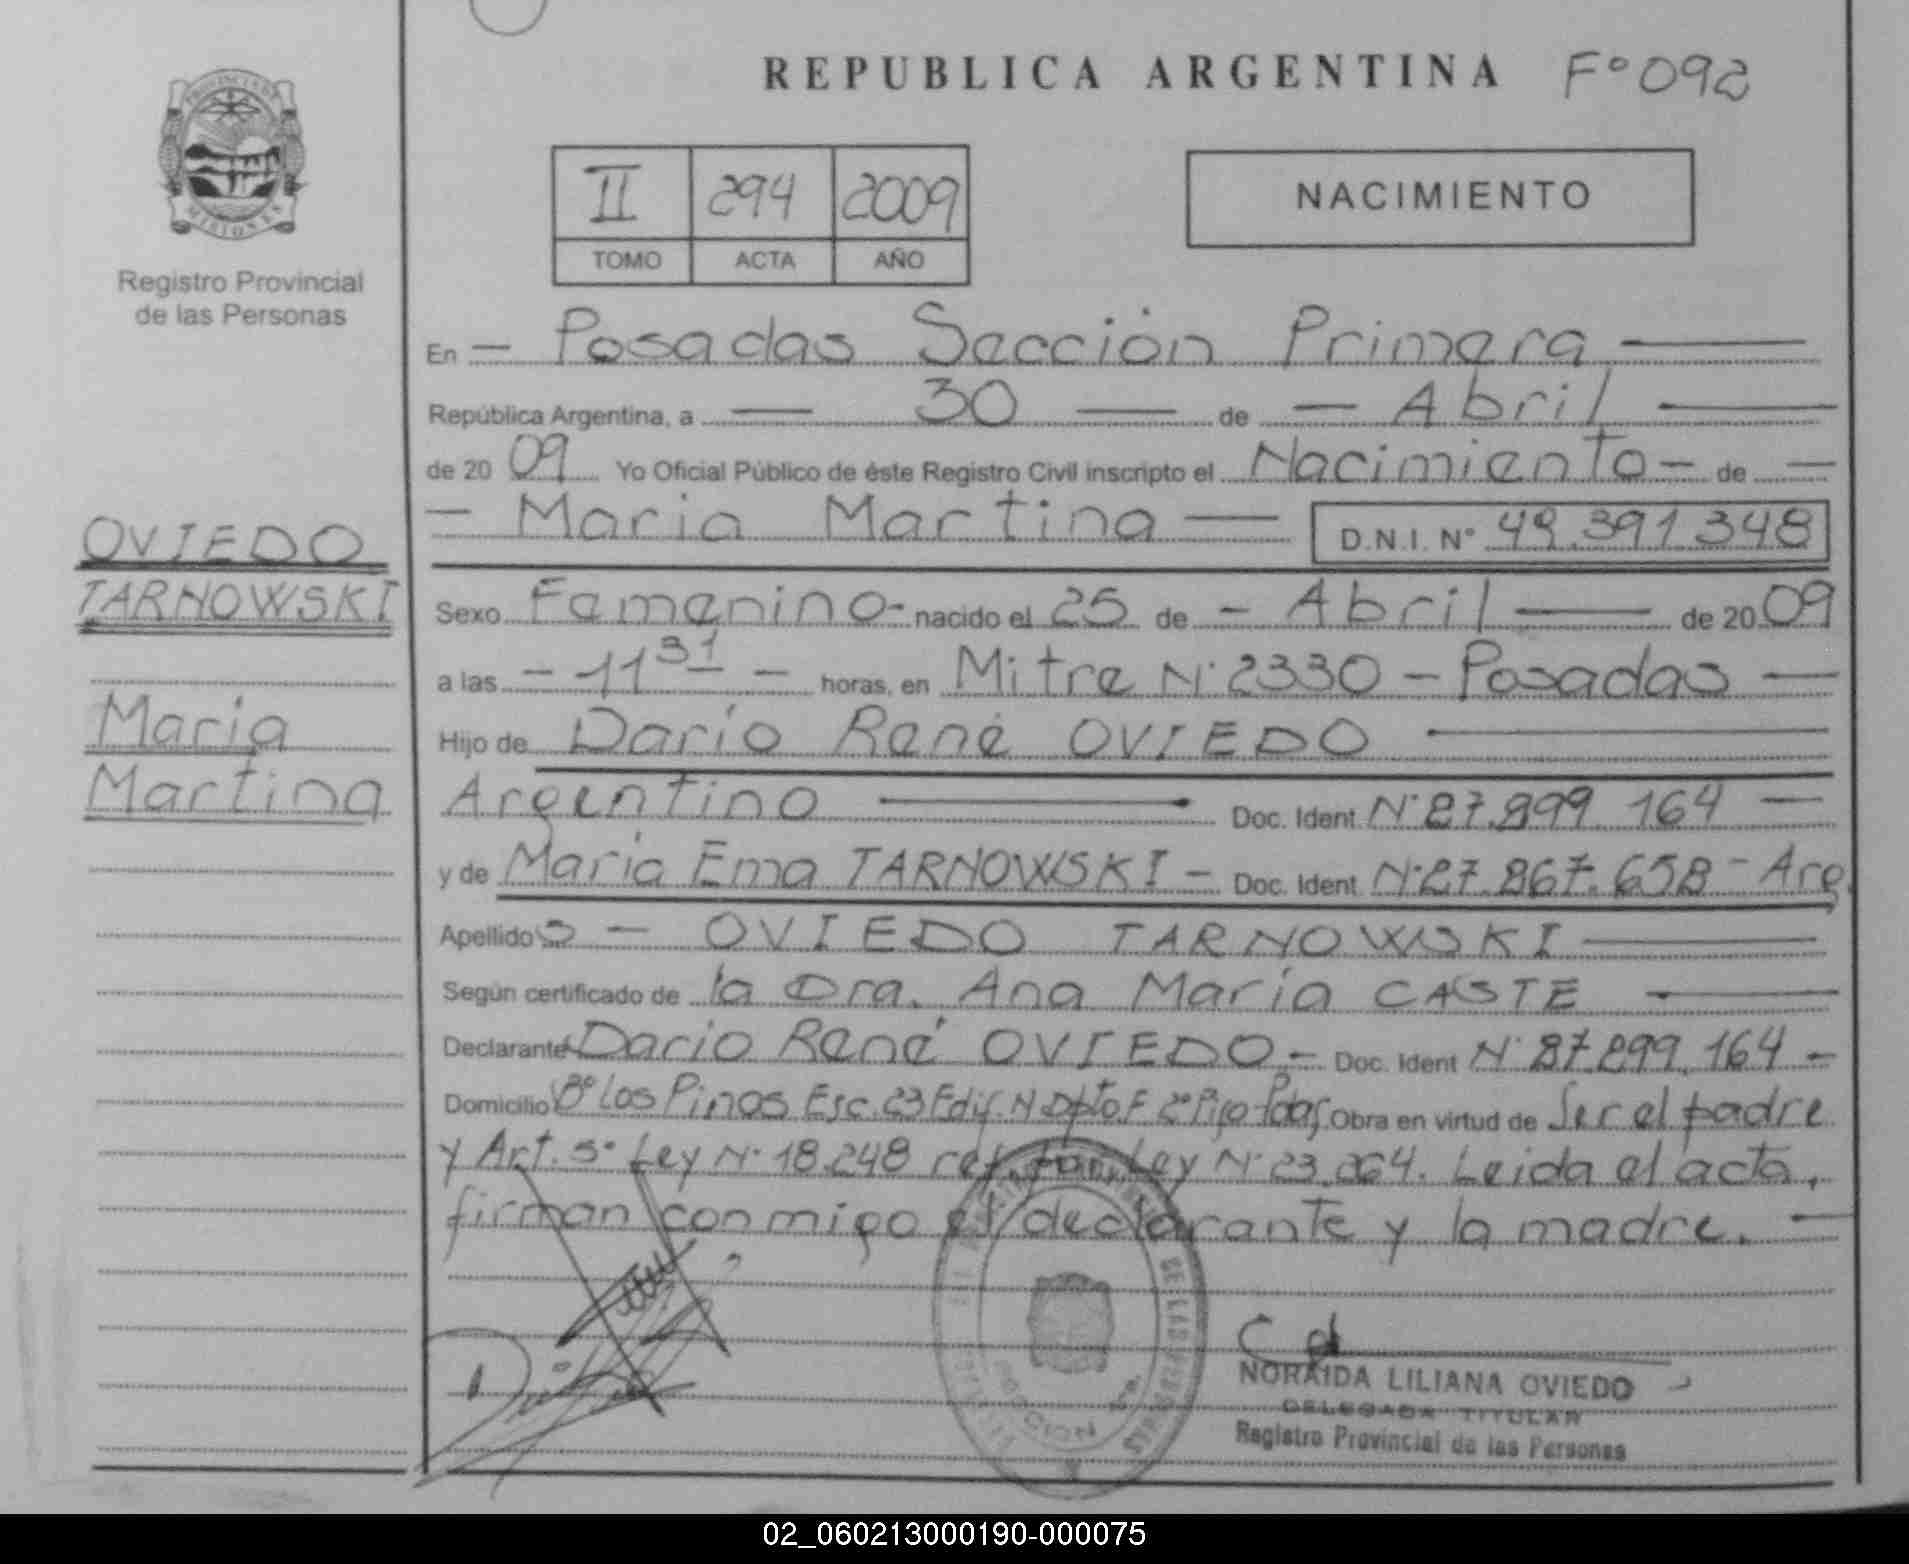 REPUBLICA ARGENTINA Fº092
PROVINCIA DE
MISIONES
Registro Provincial
de las Personas
II 294 2009
TOMO ACTA AÑO
NACIMIENTO
En — Posadas Sección Primera —
República Argentina, a — 30 — de — Abril —
de 20 09 Yo Oficial Público de éste Registro Civil inscripto el Nacimiento — de —
— Maria Martina — D.N.I. Nº 49.391.348
OVIEDO
TARNOWSKI
Maria
Martina
Sexo Femenino - nacido el 25 de — Abril — de 20 09
a las — 11 31 — horas, en Mitre Nº 2330 — Posadas —
Hijo de Darío René OVIEDO —
Argentino — Doc. Ident Nº 27.899.164 —
y de María Ema TARNOWSKI — Doc. Ident Nº 27.867.658 - Arg.
Apellidos — OVIEDO TARNOWSKI —
Según certificado de la Dra. Ana María CASTE —
Declarante Dario René OVIEDO — Doc. Ident Nº 27.899.164 —
Domicilio Bº Los Pinos Esc. 23 Edif. N Dpto. F 2º Piso - Pdas. Obra en virtud de Ser el padre
y Art. 5º Ley Nº 18.248 ref. por Ley Nº 23.264. Leida el acta,
firman conmigo el declarante y la madre. —
NORAIDA LILIANA OVIEDO
DELEGADA TITULAR
Registro Provincial de las Personas
02_060213000190-000075